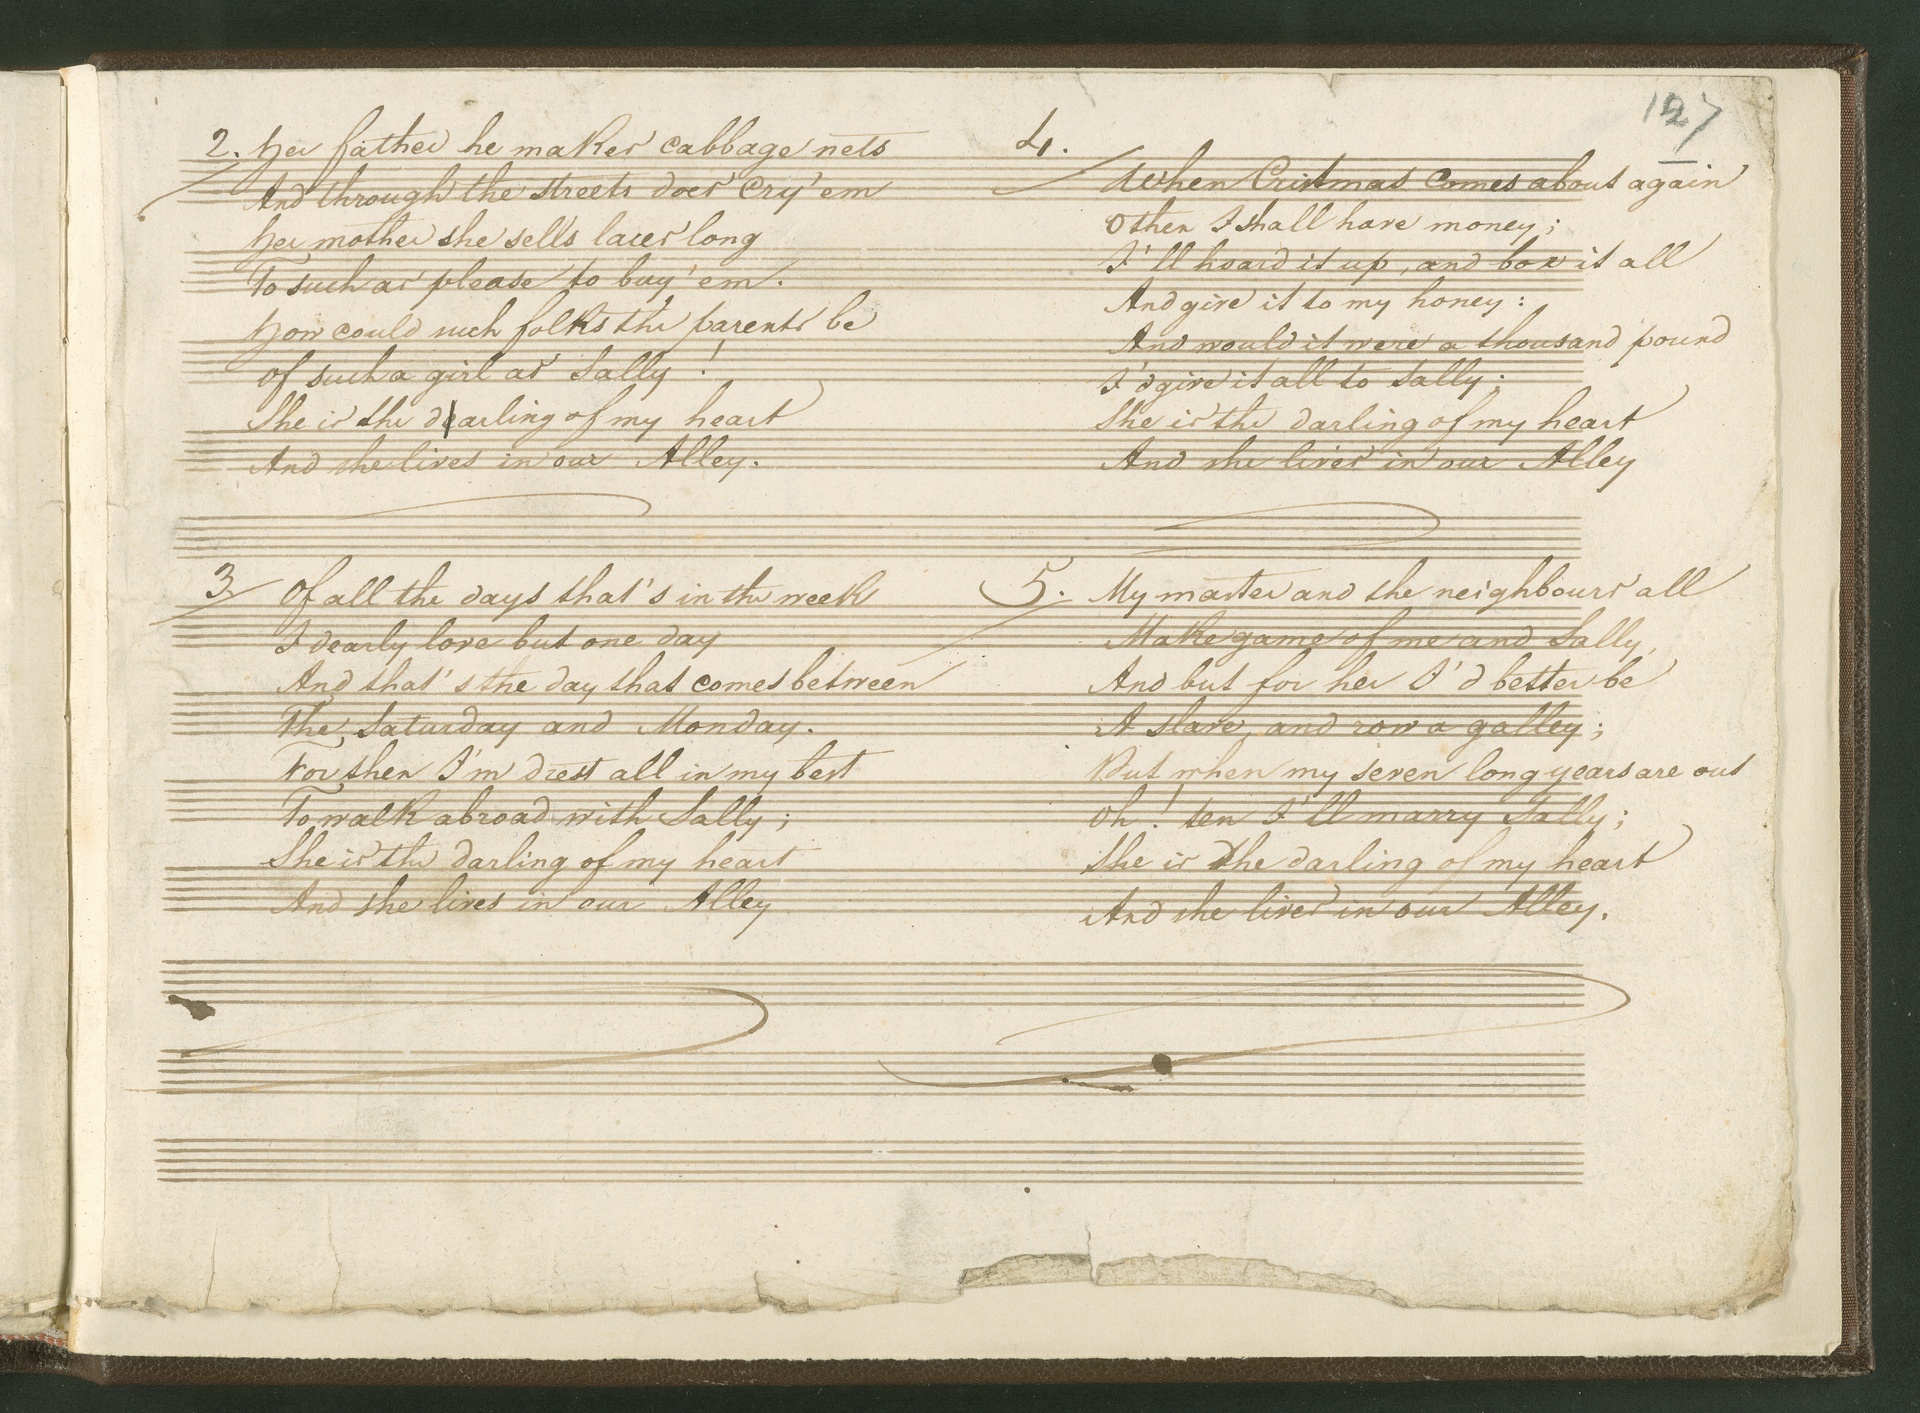 127
2. Her father he makes cabbage nets
And through the streets does Cry 'em
Her mother she sells laces long
To such as please to buy 'em.
How could such folks the parents be
of such a girl as Sally!
She is the darling of my heart
And she lives in our Alley.
3 Of all the days that's in the week
I dearly love but one day
And that's the day that comes between
The Saturday and Monday.
For then I'm drest all in my best
To walk abroad with Sally;
She is the darling of my heart
And she lives in our Alley
4.
When Cristmas Comes about again
O then I shall have money;
I'll hoard it up, and box it all
And give it to my honey:
And would it were a thousand pound
I'd give it all to Sally;
She is the darling of my heart
And she lives in our Alley
5. My master and the neighbours all
Make game of me and Sally,
And but for her I'd better be
A slave, and row a galley;
But when my seven long years are out
Oh! ten I'll marry Sally;
She is the darling of my heart
And she lives in our Alley.